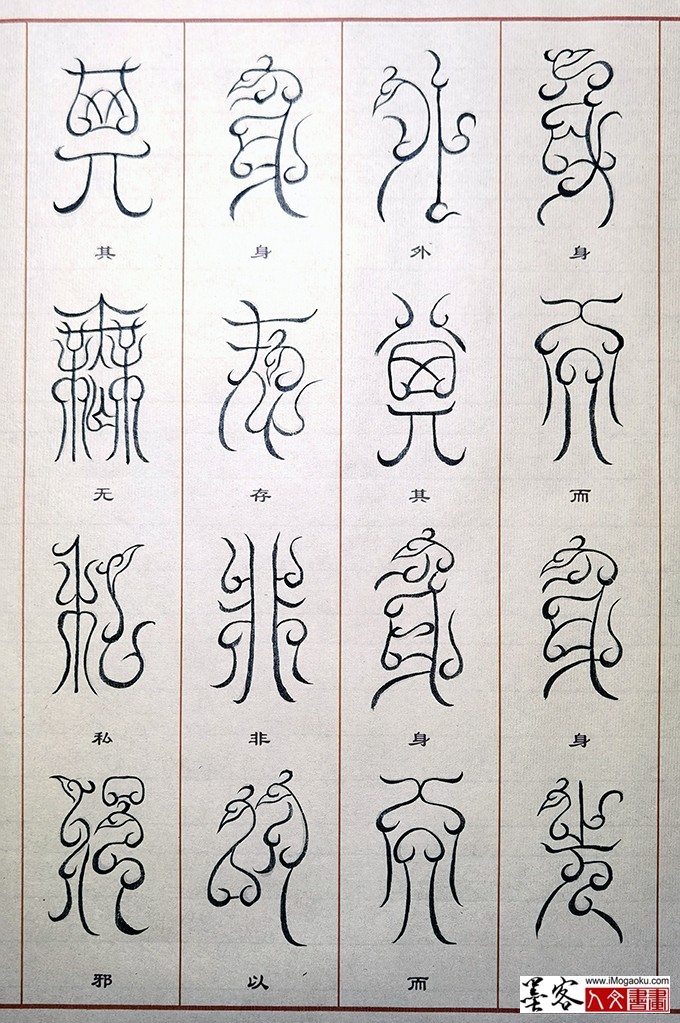 身而身先
外其身而
身存非以
其无私邪
墨客
www.iMogaoku.com
人文書畫